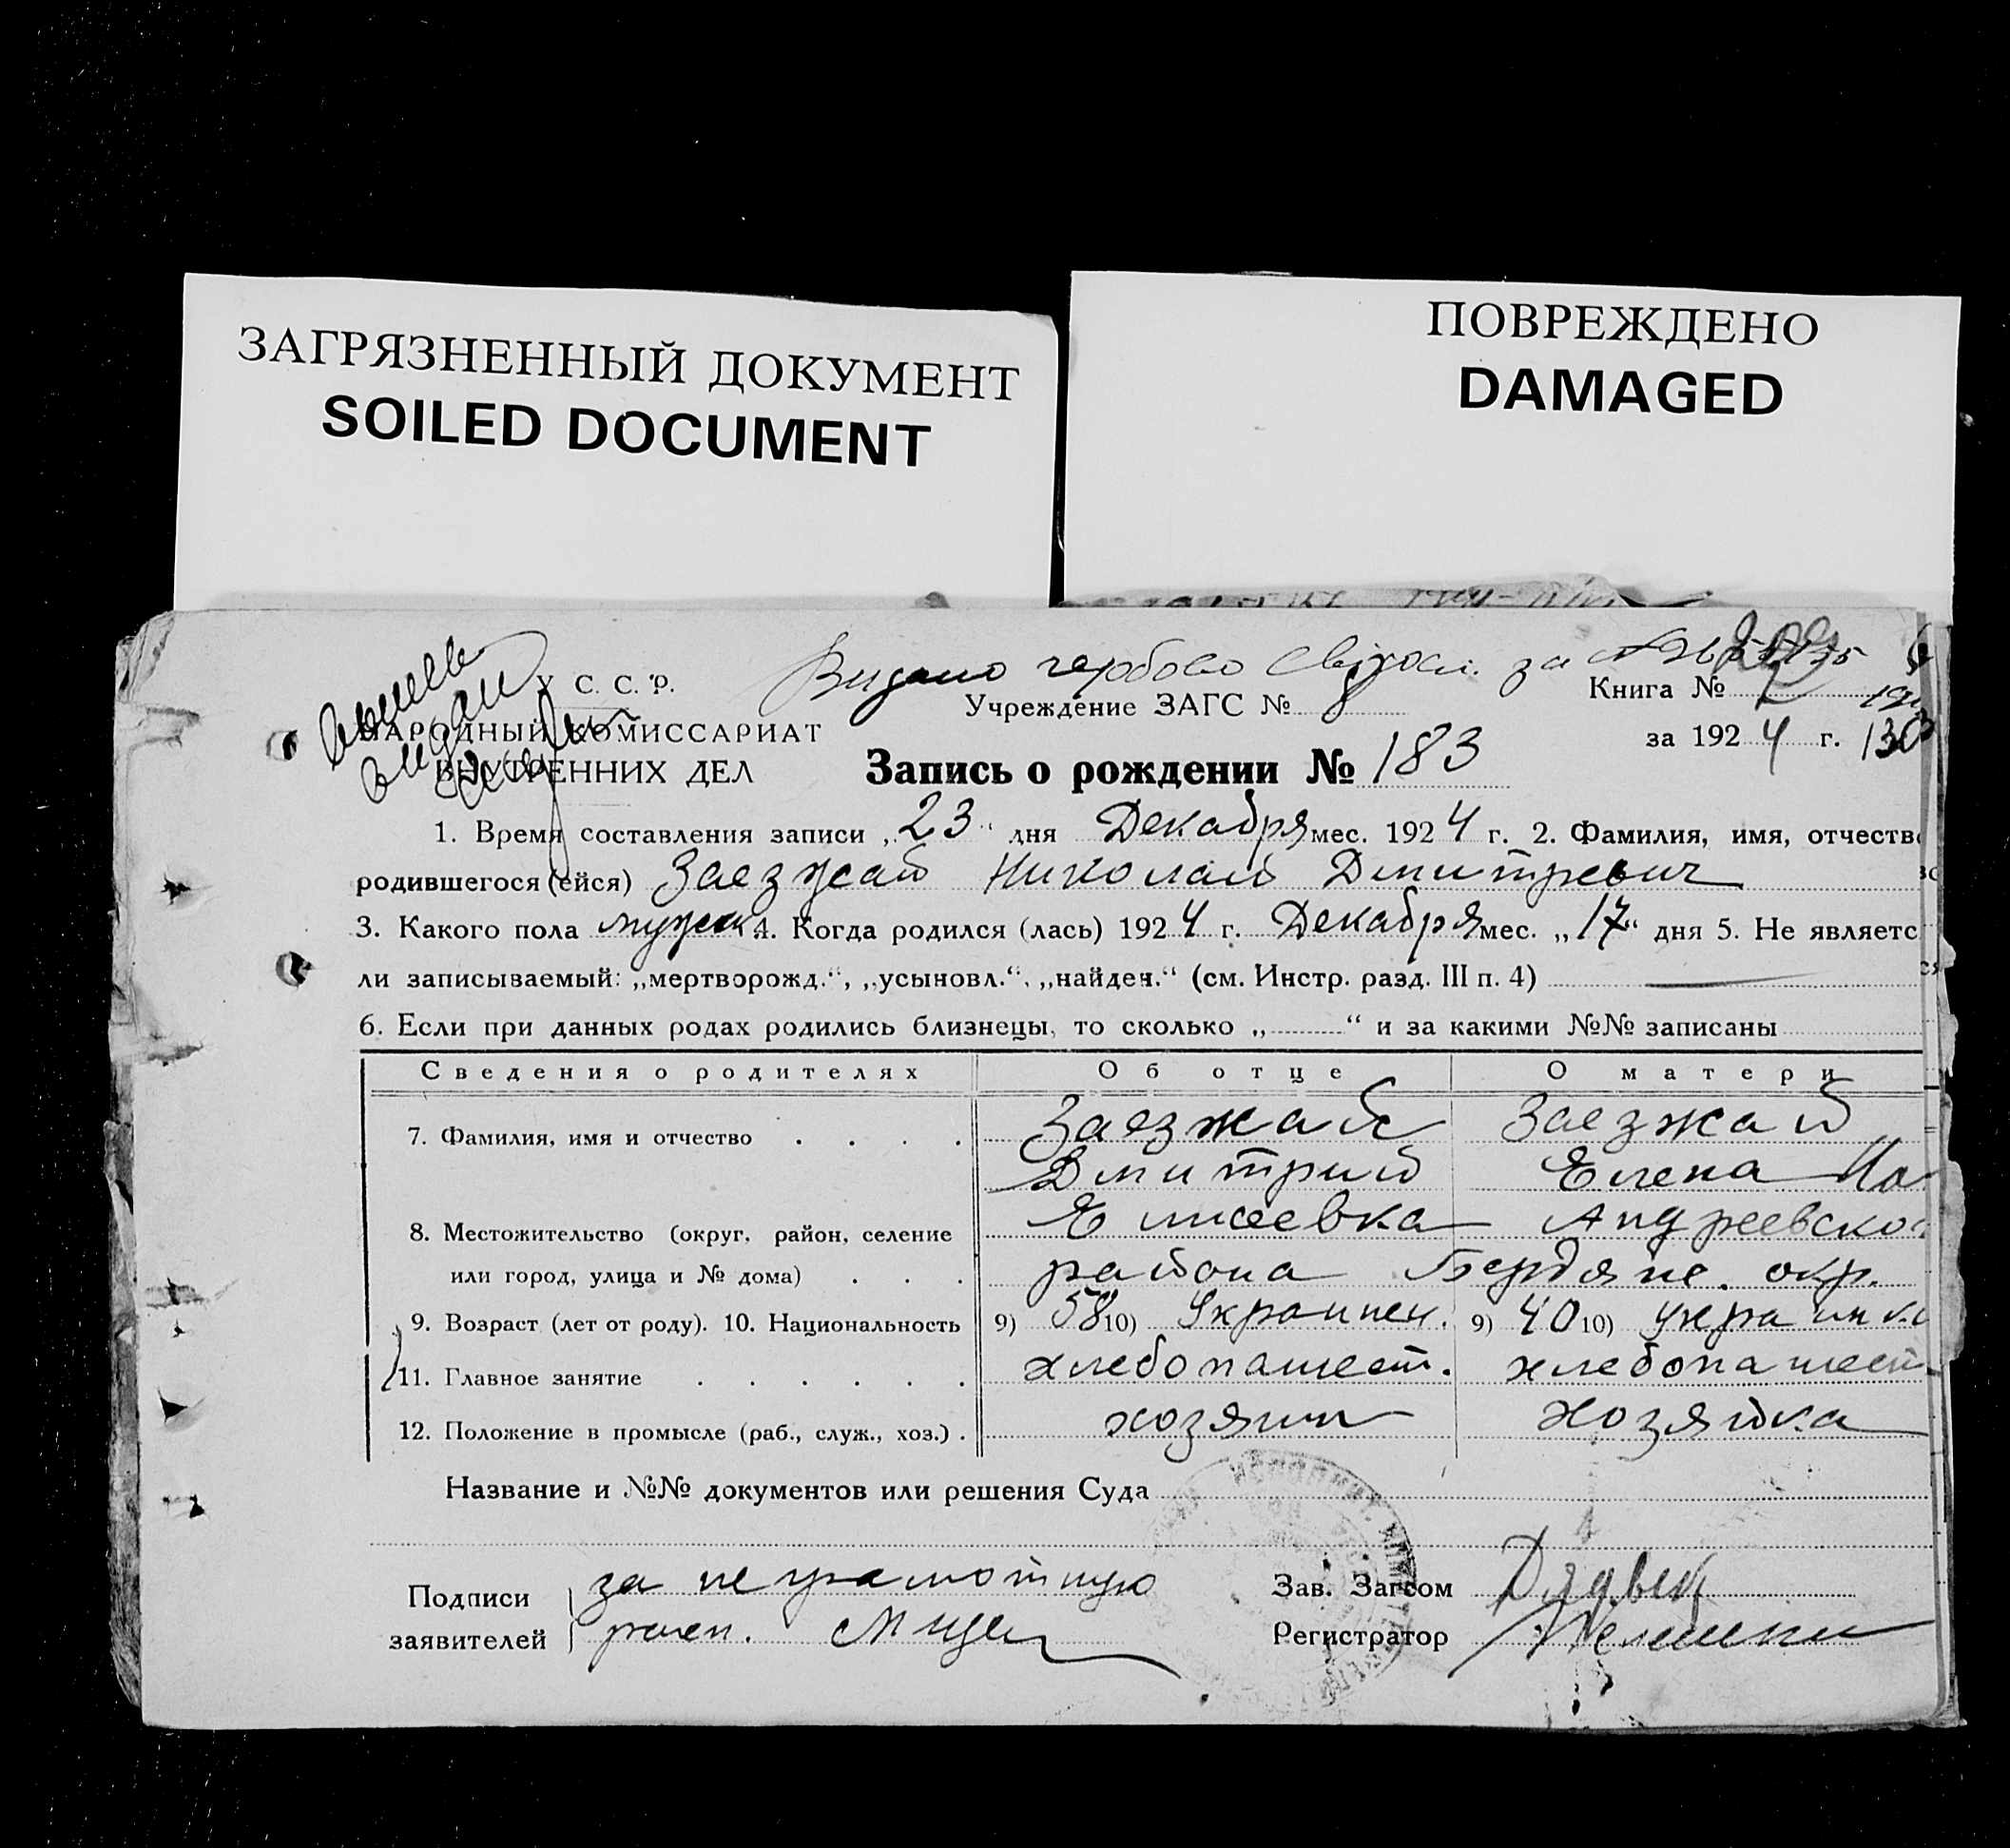 ЗАГРЯЗНЕННЫЙ ДОКУМЕНТ
SOILED DOCUMENT
ПОВРЕЖДЕНО
DAMAGED
Видано за
У С. С. Р.
Учреждение ЗАГС № 8
Книга №
НАРОДНЫЙ КОМИССАРИАТ
за 1924 г. 130
ВНУТРЕННИХ ДЕЛ
Запись о рождении № 183
1. Время составления записи „23“ дня Декабря мес. 1924 г. 2. Фамилия, имя, отчество
родившегося (ейся) Заезжай Николай Дмитревич
3. Какого пола мужск 4. Когда родился (лась) 1924 г. Декабря мес. „17“ дня 5. Не являетс
ли записываемый: „мертворожд.“, „усыновл.“, „найден.“ (см. Инстр. разд. III п. 4)
6. Если при данных родах родились близнецы, то сколько „ “ и за какими №№ записаны
Сведения о родителях Об отце О матери
7. Фамилия, имя и отчество . . . . Заезжай Заезжай
Дмитрий Елена
8. Местожительство (округ, район, селение Елисеевка Андреевско
или город, улица и № дома) . . . района Бердянс. окр.
9. Возраст (лет от роду). 10. Национальность 9) 58 10) Украинец. 9) 40 10) украинка
11. Главное занятие . . . . . . хлебопашест. хлебопашест
12. Положение в промысле (раб., служ., хоз.) . хозяин хозяйка
Название и №№ документов или решения Суда
Подписи за неграмотную
заявителей расп.
Зав. Загсом
Регистратор